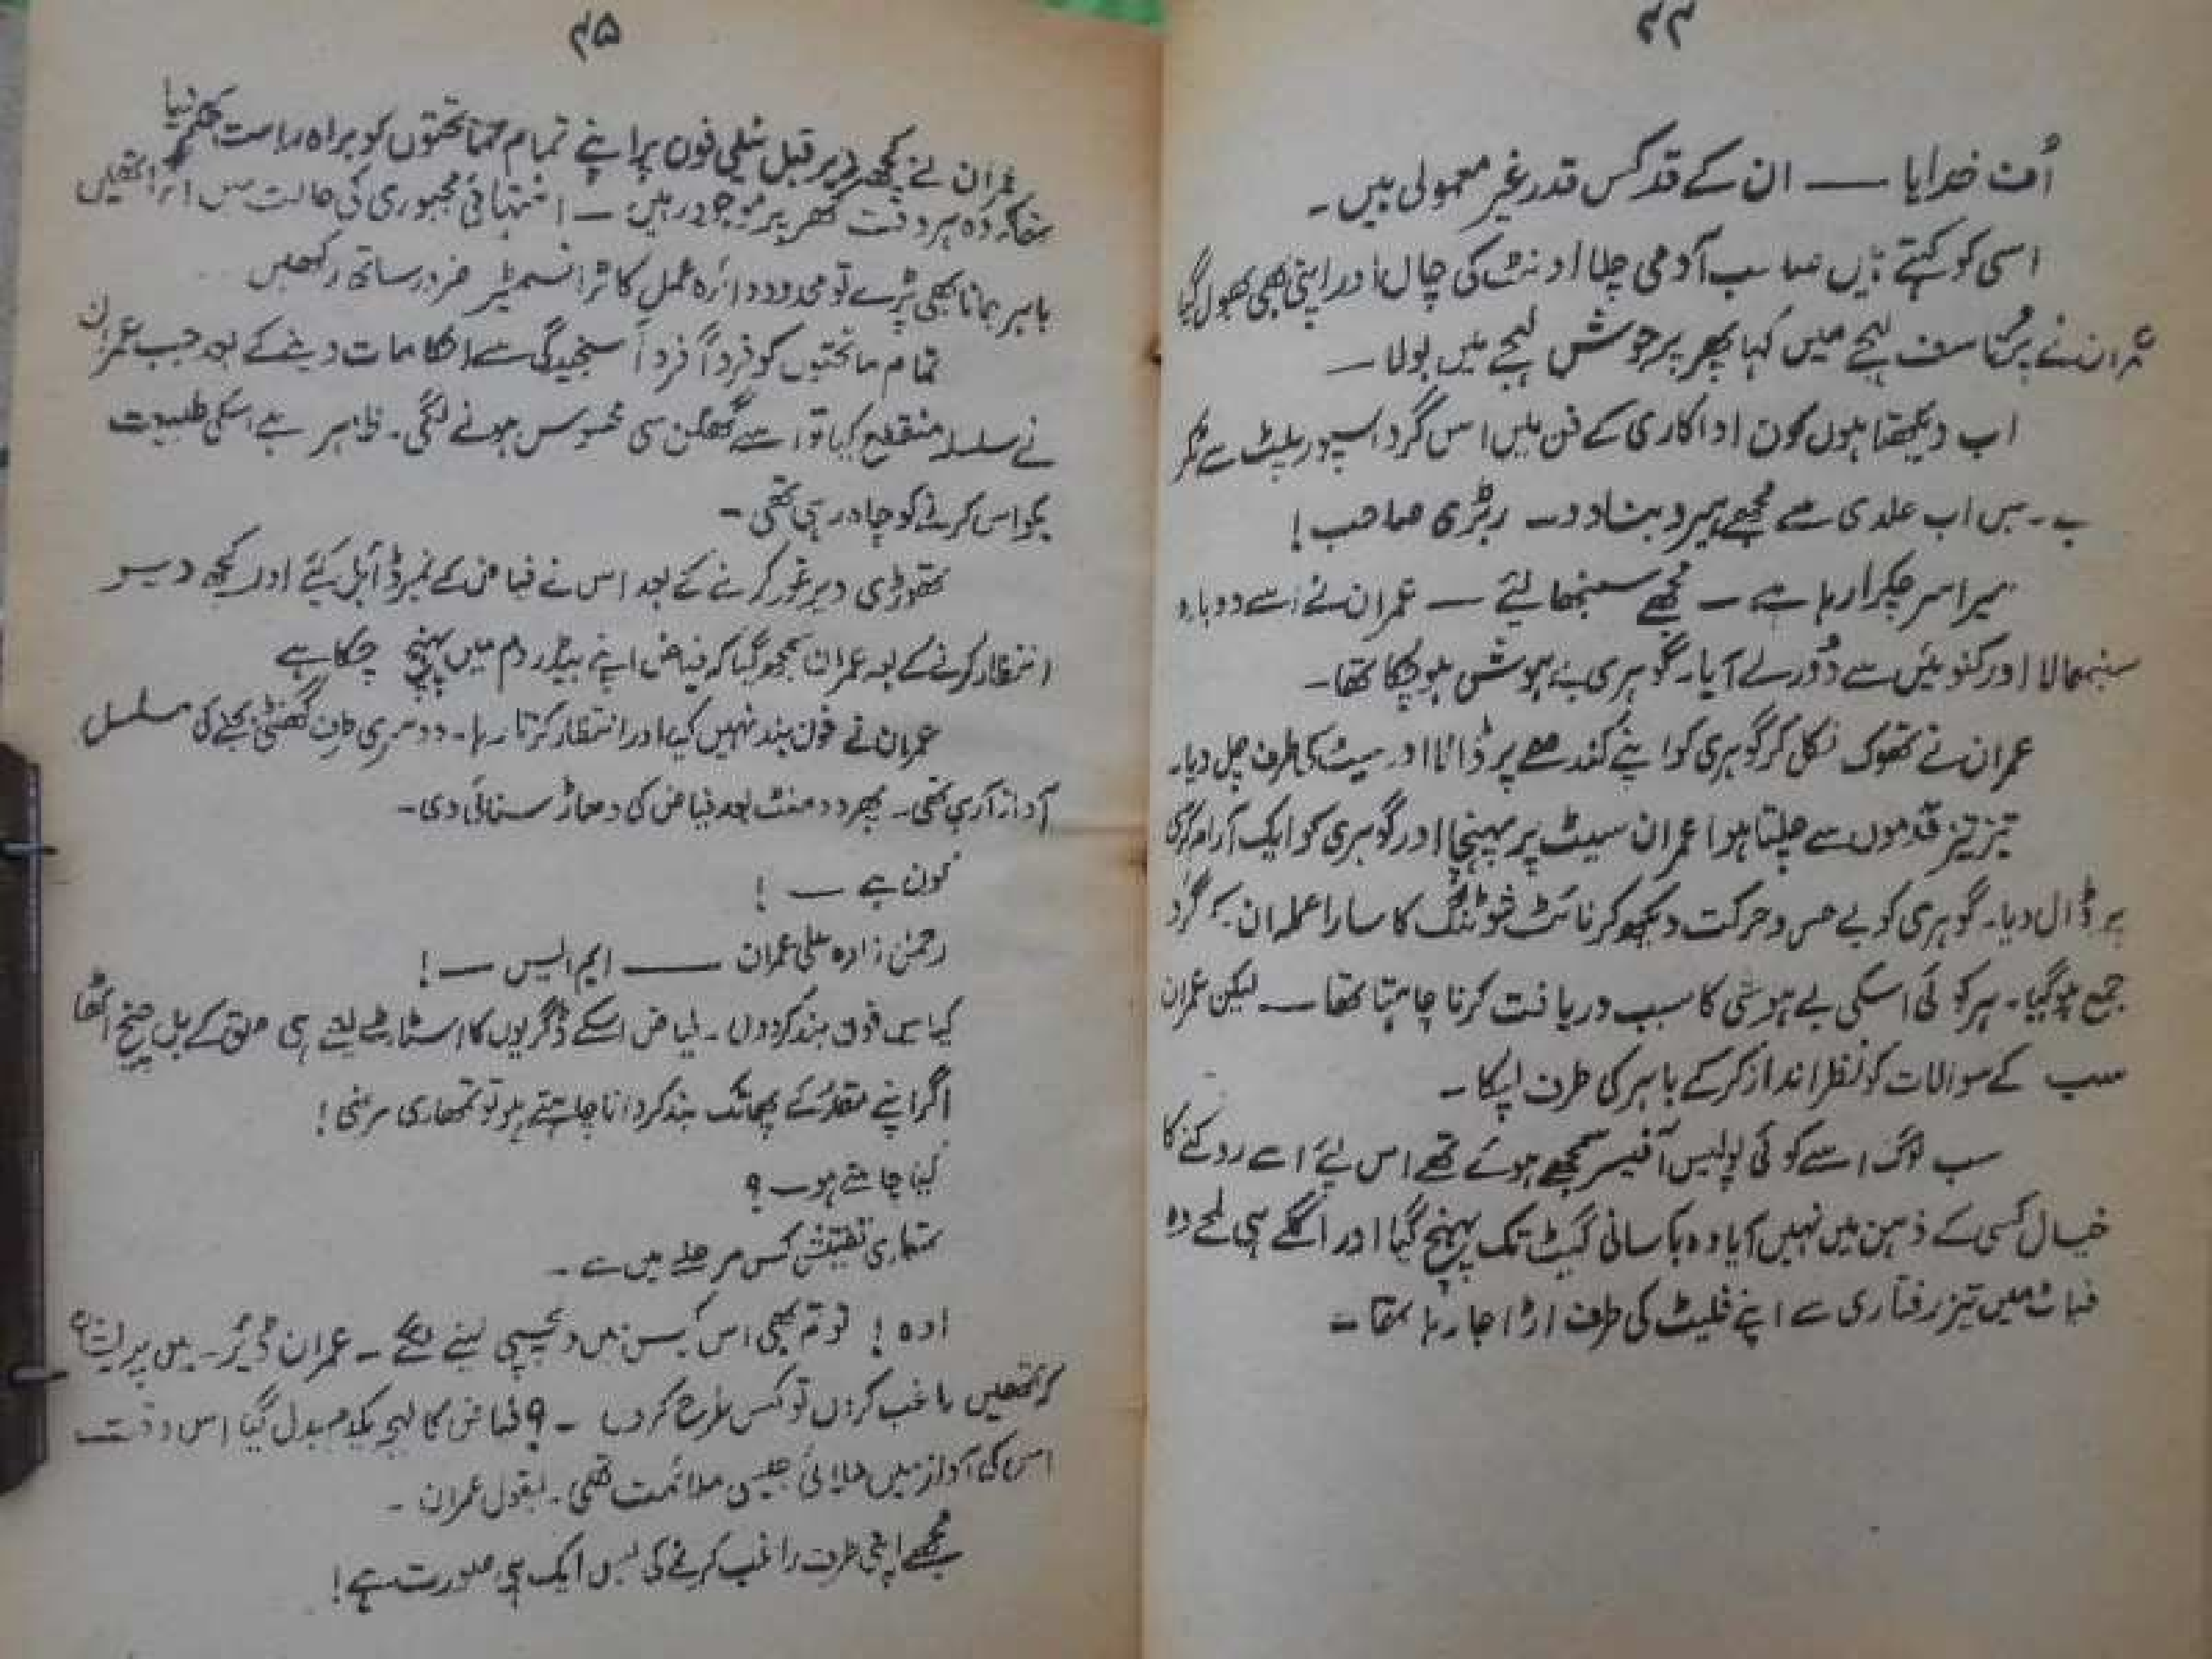 ۴۴
اُف خدایا — ان کے قد کس قدر غیر معمولی ہیں۔
اسی کو کہتے ہیں صاحب آدمی چلا اونٹ کی چال اور اپنی بھی بھول گیا
عمران نے پُرتاسف لہجے میں کہا پھر پرجوش لہجے میں بولا —
اب دیکھتا ہوں کون اداکاری کے فن میں اس گرد اسپور بلیٹ سے ٹکر
ہے۔ بس اب جلدی سے مجھے ہیرو بنا دو۔ ربڑی صاحب!
میرا سر چکرا رہا ہے — مجھے سنبھالئے — عمران نے اسے دوبارہ
سنبھالا اور کنوئیں سے دُور لے آیا۔ گوہری بے ہوش ہو چکا تھا۔
عمران نے تھوک نگل کر گوہری کو اپنے کندھے پر ڈالا اور سیٹ کی طرف چل دیا۔
تیز تیز قدموں سے چلتا ہوا عمران سیٹ پر پہنچا اور گوہری کو ایک آرام کرسی
پر ڈال دیا۔ گوہری کو بے حس و حرکت دیکھ کر نائٹ شوٹنگ کا سارا عملہ ان کے گرد
جمع ہو گیا۔ ہر کوئی اسکی بے ہوشی کا سبب دریافت کرنا چاہتا تھا — لیکن عمران
سب کے سوالات کو نظر انداز کر کے باہر کی طرف لپکا۔
سب لوگ اسے کوئی پولیس آفیسر سمجھے ہوئے تھے اس لئے اسے روکنے کا
خیال کسی کے ذہن میں نہیں آیا وہ بآسانی گیٹ تک پہنچ گیا اور اگلے ہی لمحے وہ
فیاٹ میں تیز رفتاری سے اپنے فلیٹ کی طرف اڑا جا رہا تھا۔
۴۵
عمران نے کچھ دیر قبل ٹیلی فون پر اپنے تمام ماتحتوں کو براہ راست حکم دیا
تھا کہ وہ ہر وقت گھر پر موجود رہیں — انتہائی مجبوری کی حالت میں اگر انھیں
باہر جانا بھی پڑے تو محدود دائرہ عمل کا ٹرانسمیٹر ضرور ساتھ رکھیں
تمام ماتحتوں کو فرداً فرداً سنجیدگی سے احکامات دینے کے بعد جب عمران
نے سلسلہ منقطع کیا تو اسے گھٹن سی محسوس ہونے لگی۔ ظاہر ہے اسکی طبیعت
بکواس کرنے کو چاہ رہی تھی۔
تھوڑی دیر غور کرنے کے بعد اس نے فیاض کے نمبر ڈائیل کئے اور کچھ دیر
انتظار کرنے کے بعد عمران سمجھ گیا کہ فیاض اپنے بیڈ روم میں پہنچ چکا ہے
عمران نے فون بند نہیں کیا اور انتظار کرتا رہا۔ دوسری طرف گھنٹی بجنے کی مسلسل
آواز آ رہی تھی۔ پھر دو منٹ بعد فیاض کی دھاڑ سنائی دی۔
کون ہے — !
رحمٰن زادہ علی عمران — ایم ایس — !
کیا میں فون بند کر دوں۔ فیاض اسکے ڈگریوں کا اسٹارٹ لیتے ہی حلق کے بل چیخ اُٹھا
اگر اپنے مقدر کے پھاٹک بند کروانا چاہتے ہو تو تمھاری مرضی!
کیا چاہتے ہو۔؟
تمھاری تفتیش کس مرحلے میں ہے۔
اوہ! تو تم بھی اس کیس میں دلچسپی لینے لگے۔ عمران ڈیر۔ میں پریشان ہوں
کہ تمھیں راغب کروں تو کس طرح کروں۔؟ فیاض کا لہجہ یکدم بدل گیا اس وقت
اس کی آواز میں ملائی جیسی ملائمت تھی۔ بقول عمران۔
مجھے اپنی طرف راغب کرنے کی بس ایک ہی صورت ہے!